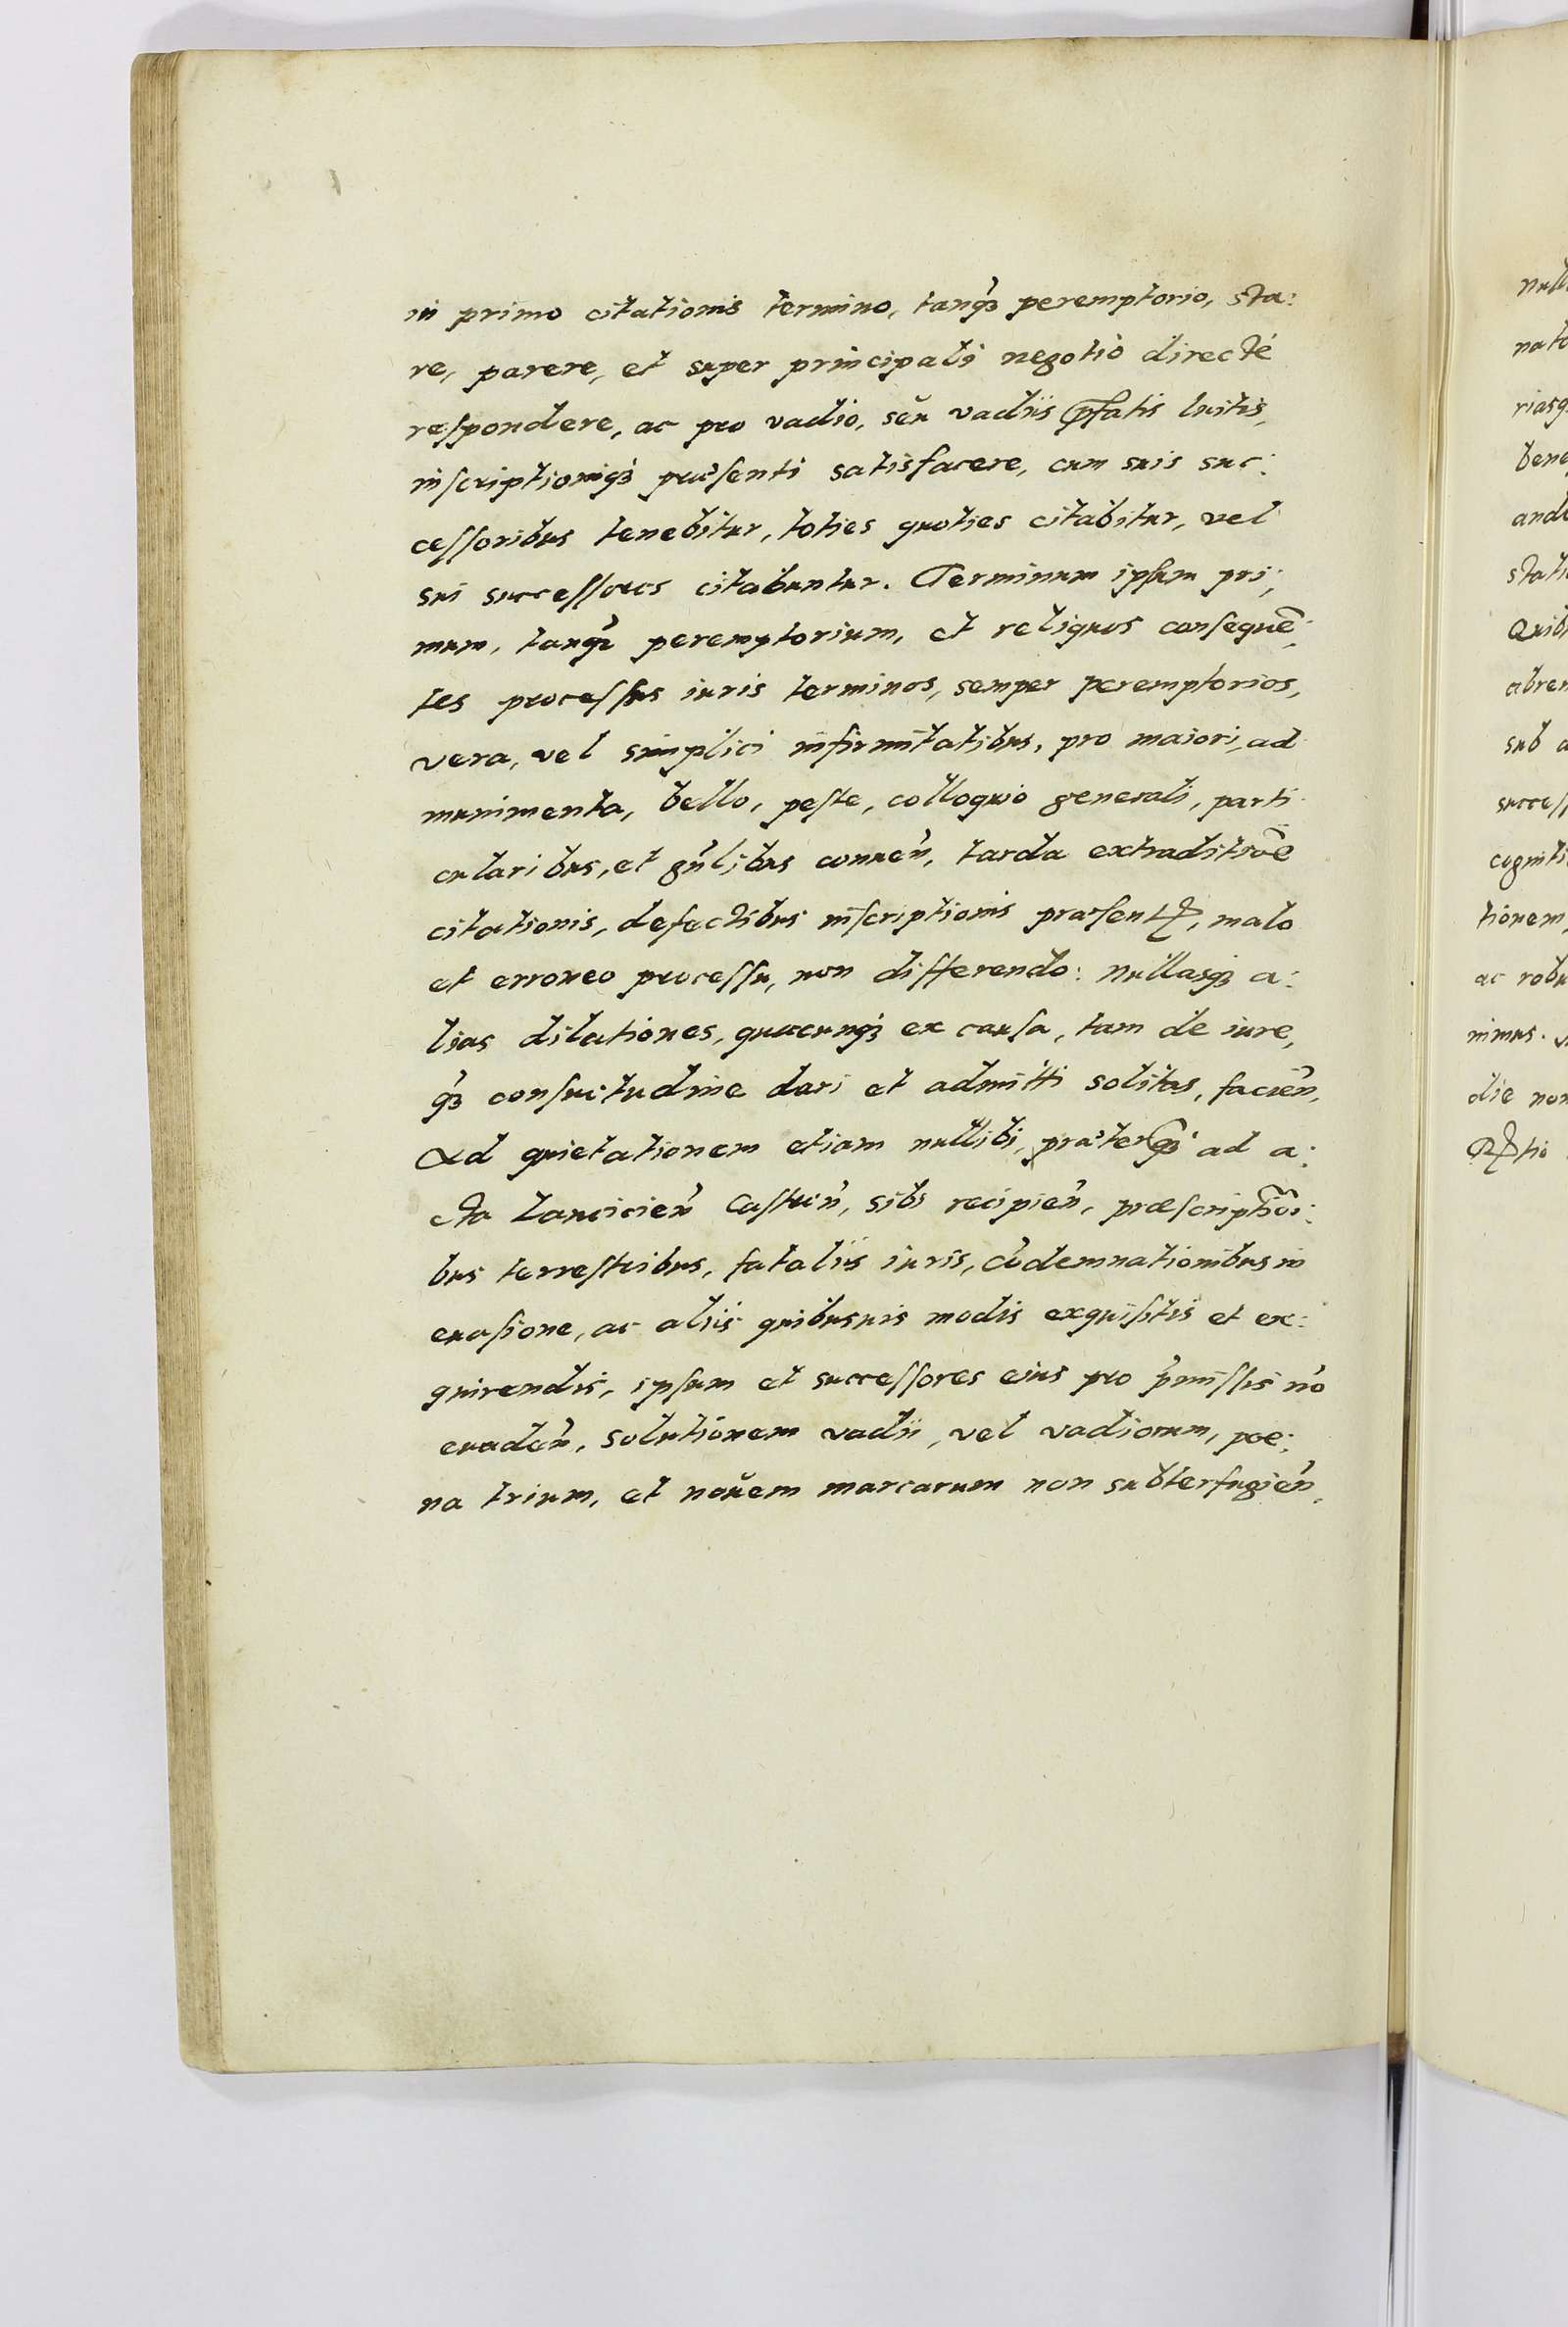 in primo citationis termino, tanq̃ȝ peremptorio, sta:
re, parere, et super principali negotio directé
reſpondere, ac pro vadio, seŭ vadijs p̃fatis luitis,
inſcriptioniq̃ȝ præſenti satisfacere, cum suis suc:
ceſſoribus tenebitur, toties quoties citabitur, vel
sui succeſſores citabuntur. Terminum ipſum pri;
mum, tanq̃ȝ peremptorium, et reliquos conſequẽ;
tes proceſſus iuris terminos, semper peremptorios,
vera, vel simplici infirmitatibus, pro maiori, ad
munimenta, bello, peſte, colloquio generali, parti
cularibus, et gn̄libus conuen̄, tarda extraditioẽ
citationis, defectibus inſcriptionis præſentꝭ, malo
et erroneo proceſſu, non differendo: nullasq̃ȝ a:
lias dilationes, quacunq̃ȝ ex cauſa, tam de iure,
q̃ȝ conſuetudine dari et admitti solitas, facien̄,
Ad quietationem etiam nullibi, præterq̃ȝ ad a:
cta Lancicien̄ Caſtren̄, sibi recipien̄, præſcriptiõi:
bus terreſtribus, fatalijs iuris, cõdemnationibus in
euaſione, ac alijs quibusuis modis exquiſitis et ex:
quirendis, ipſum et succeſſores eius pro p̃miſſis nõ
euaden̄, solutionem vadij, vel vadiorum, poe;
na trium, et noŭem marcarum non subterfugien̄,
null
nato
riasq
bene
ande
stati
Quib
abren
sub a
succeſſ
cogniti
tionem,
ac robu
nimus.
die non